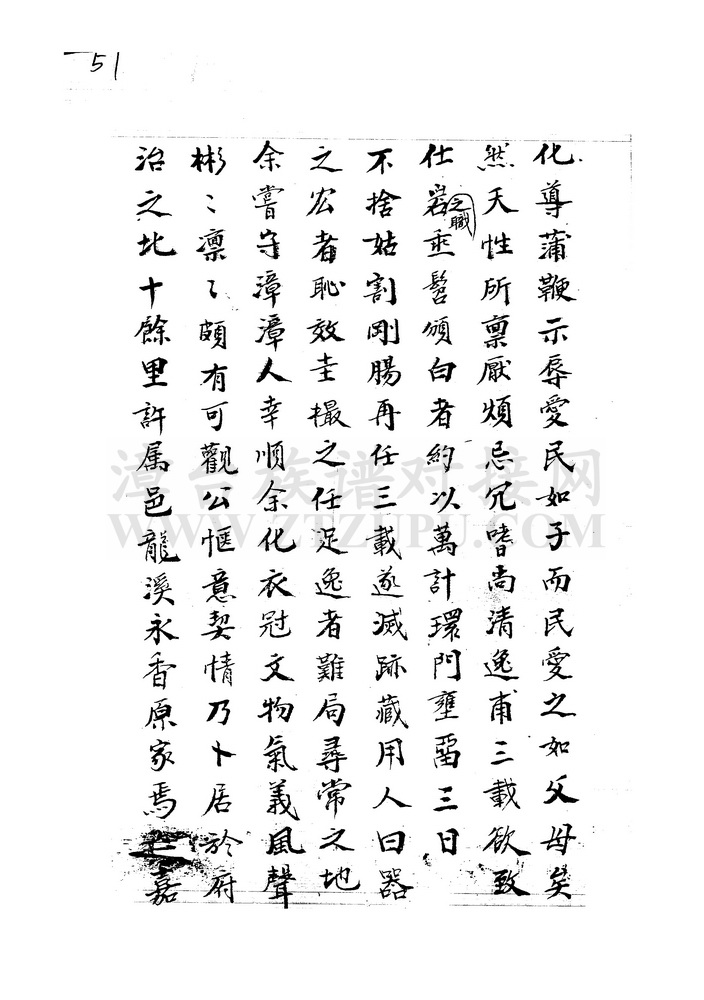 51
化導蒲鞭示辱愛民如子而民愛之如父母矣
然天性所禀厭煩忌冗嗜尚清逸甫三載欲致
仕岩垂髫頒白者約以萬計環門壅留三日
之職
不捨姑割剛腸再任三載遂滅跡藏用人曰器
之宏者恥效圭撮之任足逸者難局尋常之地
余嘗守漳漳人幸順余化衣冠文物氣義風聲
彬〻凛〻頗有可觀公愜意契情乃卜居於府
治之北十餘里許属邑龍溪永香原家焉嘉
漳台族谱对接网
WWW.ZTZUPU.COM